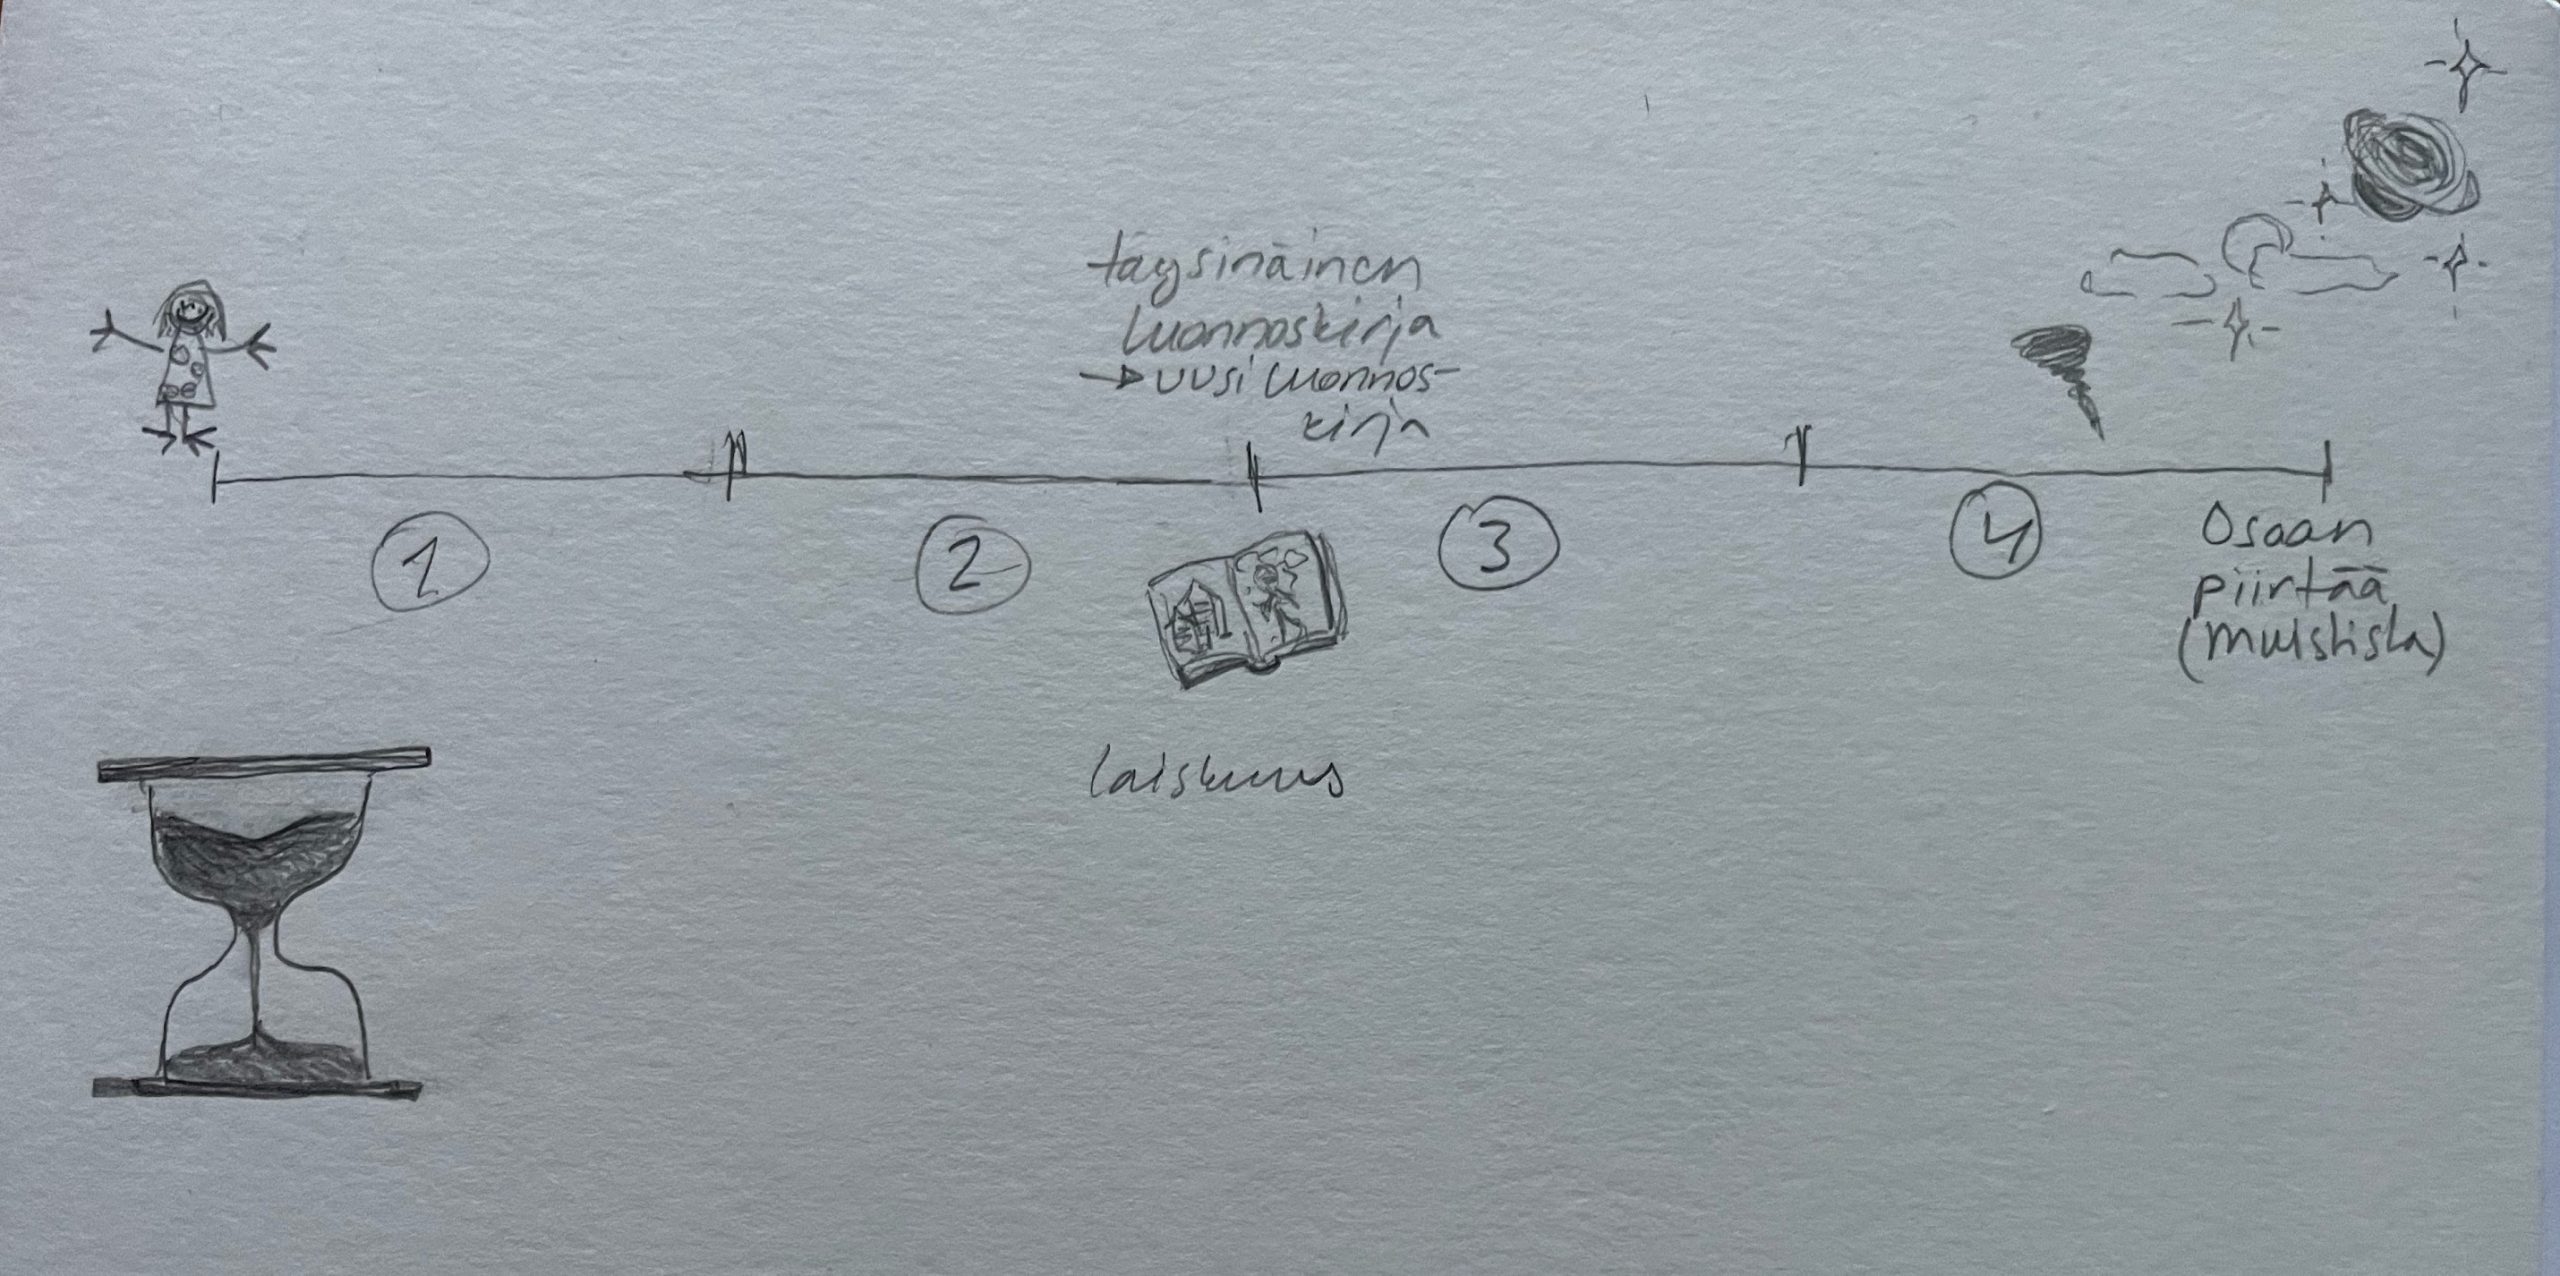 täysinäinen
luonnoskirja
→ uusi luonnos-
kirja
1
2
3
4
Osaan
piirtää
(muistista)
laiskuus